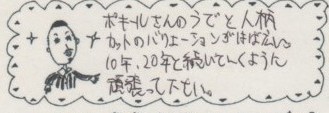 ポキールさんのうでと人柄
カットのバリエーションがすばらしい。
10年、20年と続いていくように
頑張って下さい。